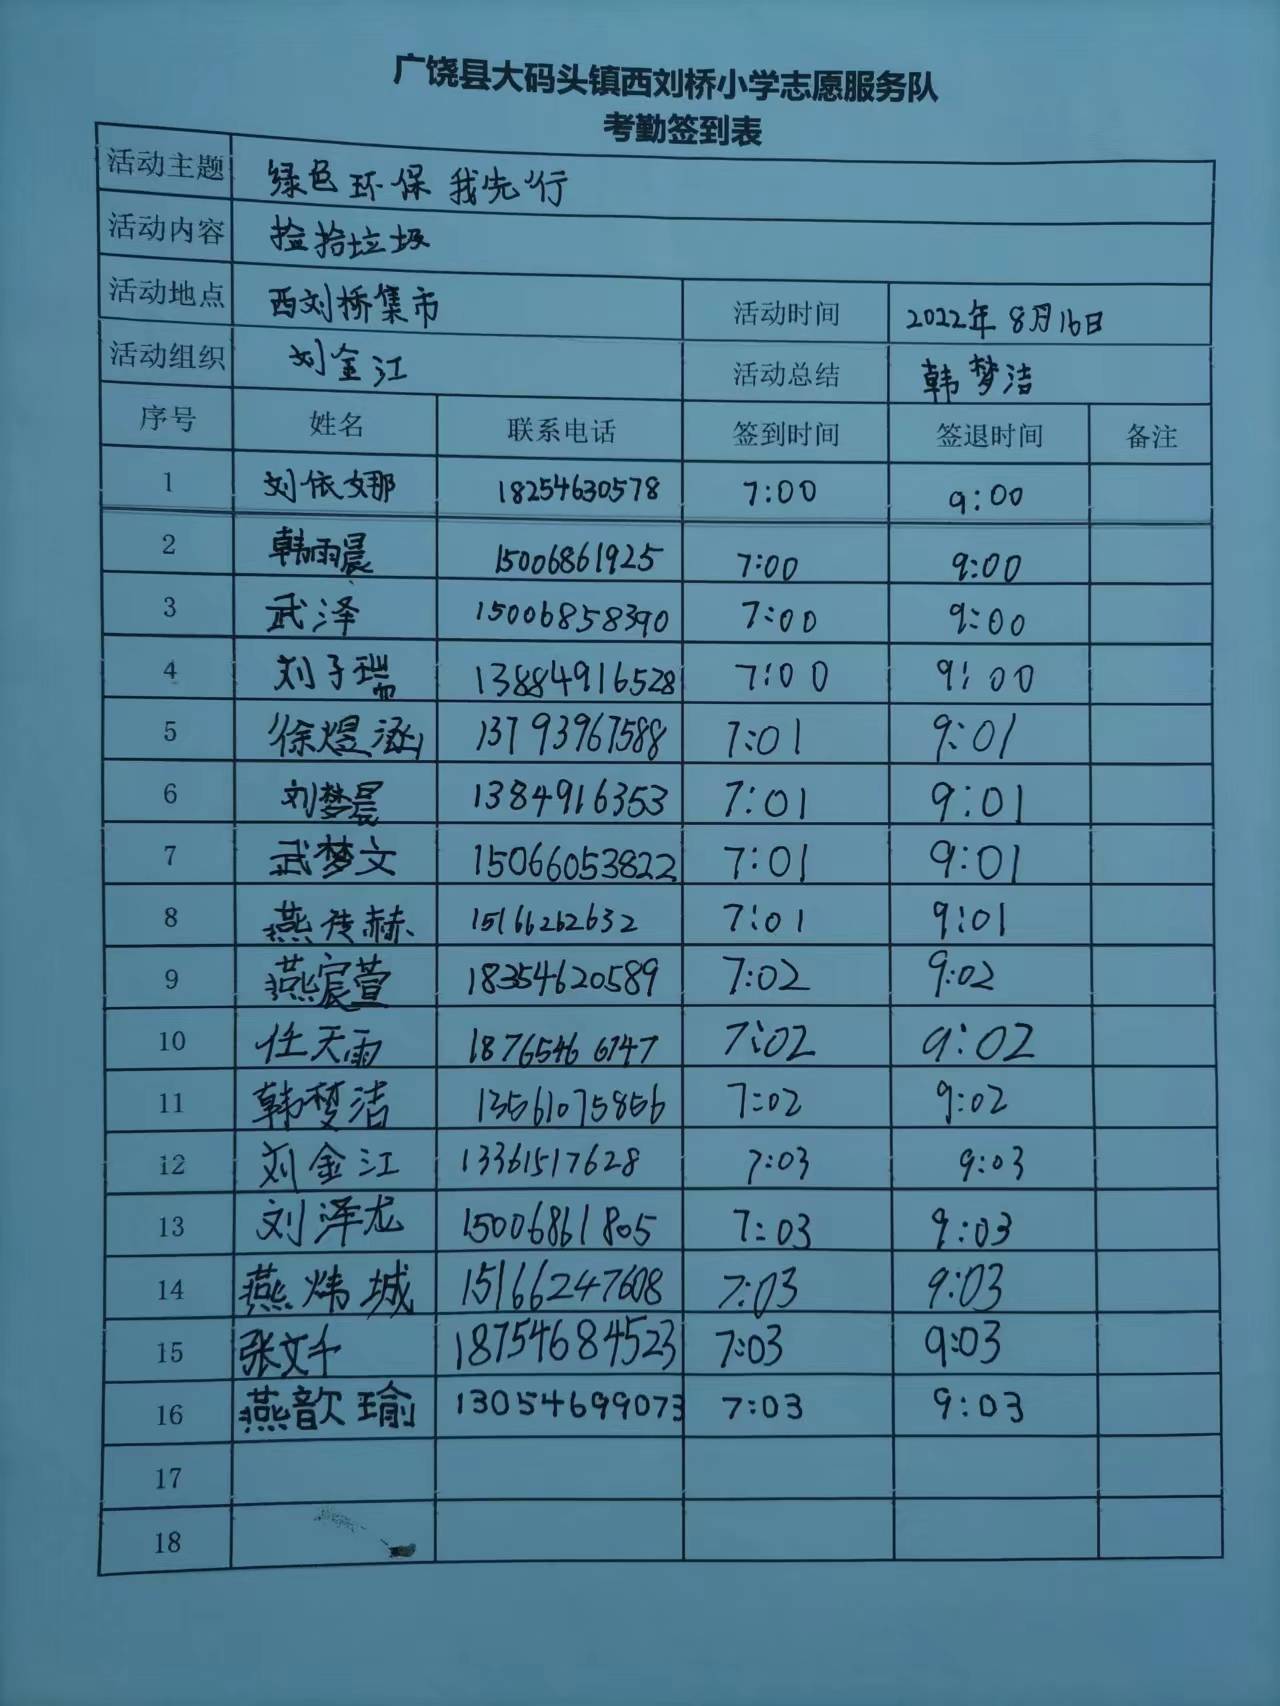 广饶县大码头镇西刘桥小学志愿服务队
考勤签到表
活动主题 绿色环保我先行
活动内容 捡拾垃圾
活动地点 西刘桥集市 活动时间 2022年8月16日
活动组织 刘金江 活动总结 韩梦洁
序号 姓名 联系电话 签到时间 签退时间 备注
1 刘依娜 18254630578 7:00 9:00
2 韩雨晨 15006861925 7:00 9:00
3 武泽 15006858390 7:00 9:00
4 刘子瑞 13884916528 7:00 9:00
5 徐煜涵 13793967588 7:01 9:01
6 刘梦晨 1384916353 7:01 9:01
7 武梦文 15066053822 7:01 9:01
8 燕传赫 15166262632 7:01 9:01
9 燕宸萱 18354620589 7:02 9:02
10 任天雨 18765466747 7:02 9:02
11 韩梦洁 13561075856 7:02 9:02
12 刘金江 13361517628 7:03 9:03
13 刘泽龙 15006861805 7:03 9:03
14 燕炜城 15166247608 7:03 9:03
15 张文千 18754684523 7:03 9:03
16 燕歆瑜 13054699073 7:03 9:03
17
18